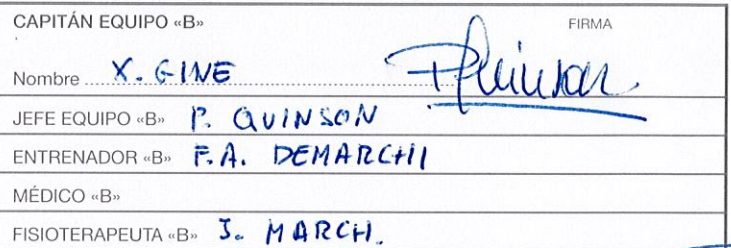 CAPITÁN EQUIPO «B» FIRMA
Nombre X. GINE PQuinson
JEFE EQUIPO «B» P. QUINSON
ENTRENADOR «B» F.A. DEMARCHI
MÉDICO «B»
FISIOTERAPEUTA «B» J. MARCH.